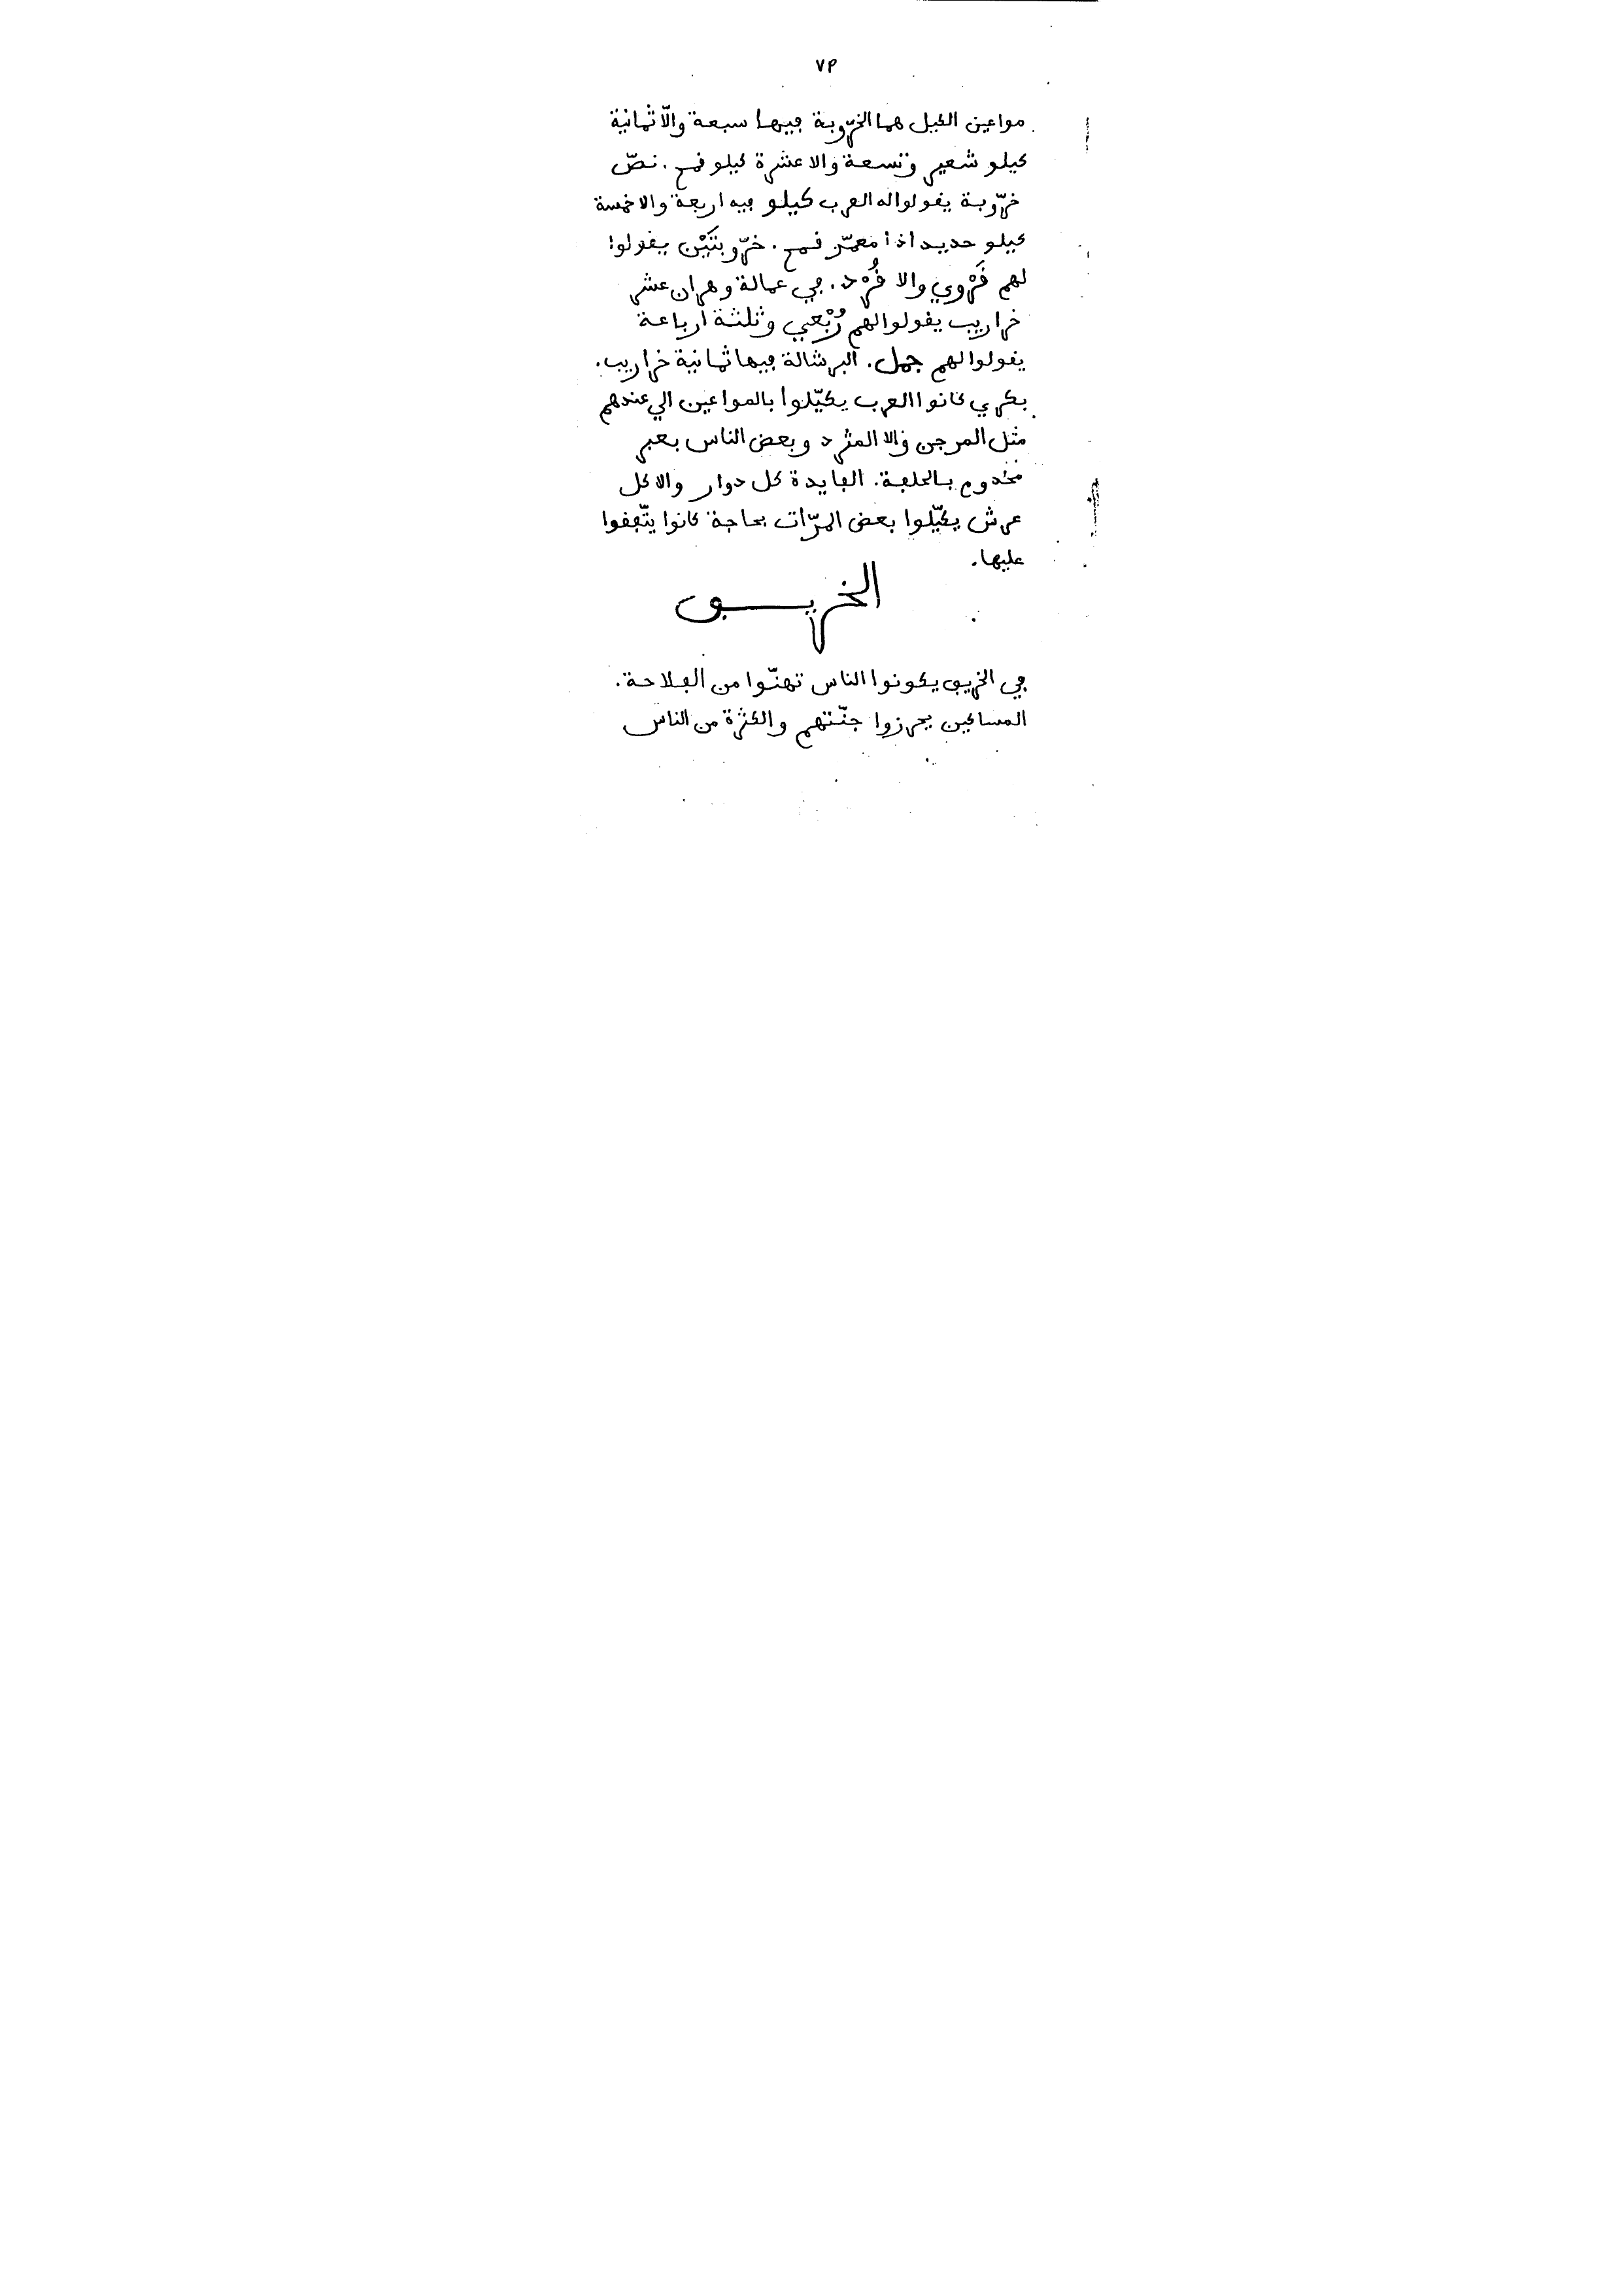 ٧٩
مواعين الكيل هما الخرّوبة فيها سبعة والّا ثمانية
كيلو شعير وتسعة والا عشرة كيلو قمح. نصّ
خرّوبة يقولوا له العرب كيلو فيه اربعة والا خمسة
كيلو حديد اذا معمّر قمح. خرّوبتَيْن يقولوا
لهم قَرْوي والا قُرْد. في عمالة وهران عشر
خراريب يقولوا لهم رُبْعي وثلثة ارباعة
يقولوا لهم جمل. البرشالة فيها ثمانية خراريب.
بكري كانوا العرب يكيّلوا بالمواعين الي عندهم
مثل المرجن والا المثرد وبعض الناس بعبر
مخدوم بالحلفة. الفايدة كل دوار والا كل
عرش يكيّلوا بعض المرّات بحاجة كانوا يتّفقوا
عليها.
الخريف
في الخريف يكونوا الناس تهنّوا من الفلاحة.
المساكين يحرزوا جنّتهم والكثرة من الناس